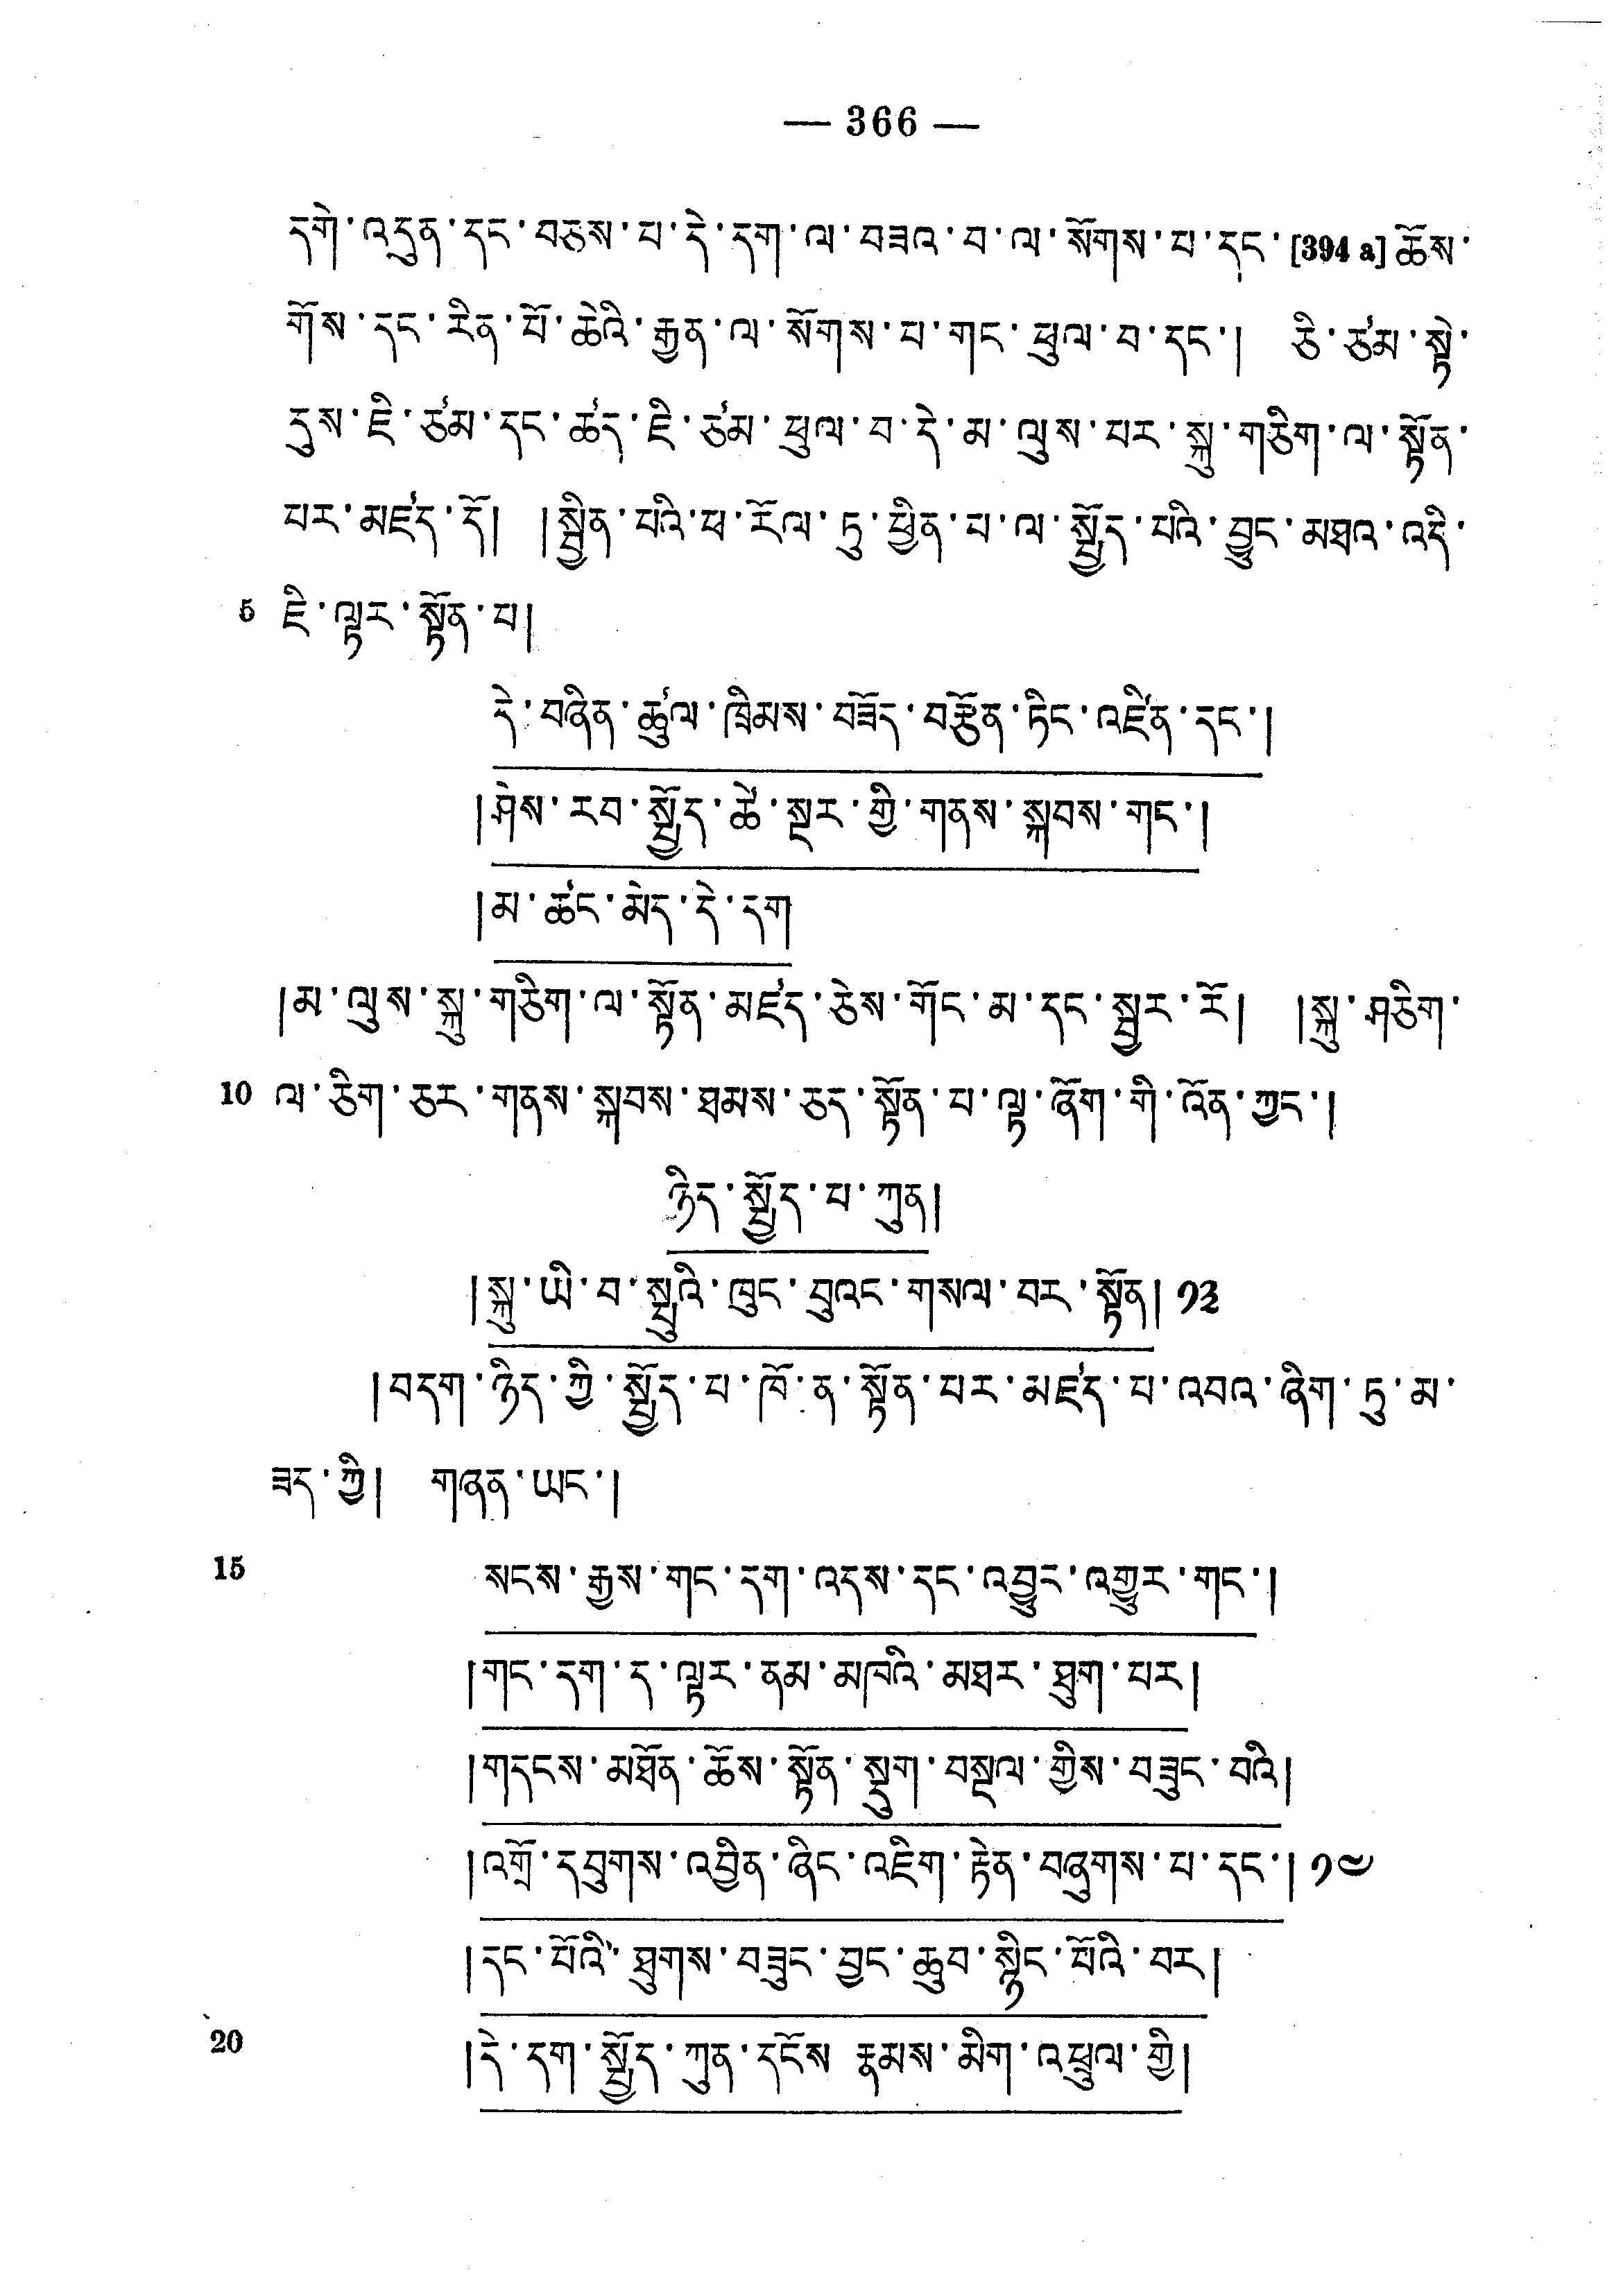 — 366 —
དགེ་འདུན་དང་བཅས་པ་དེ་དག་ལ་བཟའ་བ་ལ་སོགས་པ་དང་[394 a]ཆོས་
གོས་དང་རིན་པོ་ཆེའི་རྒྱན་ལ་སོགས་པ་གང་ཕུལ་བ་དང་། ཅི་ཙམ་སྟེ་
དུས་ཇི་ཙམ་དང་ཚད་ཇི་ཙམ་ཕུལ་བ་དེ་མ་ལུས་པར་སྐུ་གཅིག་ལ་སྟོན་
པར་མཛད་དོ། །སྦྱིན་པའི་ཕ་རོལ་ཏུ་ཕྱིན་པ་ལ་སྤྱོད་པའི་བྱུང་མཐའ་འདི་
5 ཇི་ལྟར་སྟོན་པ།
དེ་བཞིན་ཚུལ་ཁྲིམས་བཟོད་བརྩོན་ཏིང་འཛིན་དང་།
།ཤེས་རབ་སྤྱོད་ཚེ་སྔར་གྱི་གནས་སྐབས་གང་།
།མ་ཚང་མེད་དེ་དག
།མ་ལུས་སྐུ་གཅིག་ལ་སྟོན་མཛད་ཅེས་གོང་མ་དང་སྦྱར་རོ། །སྐུ་ཤཅིག་
10 ལ་ཅིག་ཅར་གནས་སྐབས་ཐམས་ཅད་སྟོན་པ་ལྟ་ཞོག་གི་འོན་ཀྱང་།
ཉིད་སྤྱོད་པ་ཀུན།
།སྐུ་ཡི་བ་སྤུའི་ཁུང་བུའང་གསལ་བར་སྟོན། ༡༣
།བདག་ཉིད་ཀྱི་སྤྱོད་པ་ཁོ་ན་སྟོན་པར་མཛད་པ་འབའ་ཞིག་ཏུ་མ་
ཟད་ཀྱི། གཞན་ཡང་།
15 སངས་རྒྱས་གང་དག་འདས་དང་འབྱུང་འགྱུར་གང་།
།གང་དག་ད་ལྟར་ནམ་མཁའི་མཐར་ཐུག་པར།
།གདངས་མཐོན་ཆོས་སྟོན་སྡུག་བསྔལ་གྱིས་བཟུང་བའི།
།འགྲོ་དབུགས་འབྱིན་ཞིང་འཇིག་རྟེན་བཞུགས་པ་དང་། ༡༤
།དང་པོའི་ཐུགས་བཟུང་བྱང་ཆུབ་སྙིང་པོའི་བར།
20 །དེ་དག་སྤྱོད་ཀུན་དངོས རྣམས་མིག་འཕྲུལ་གྱི།